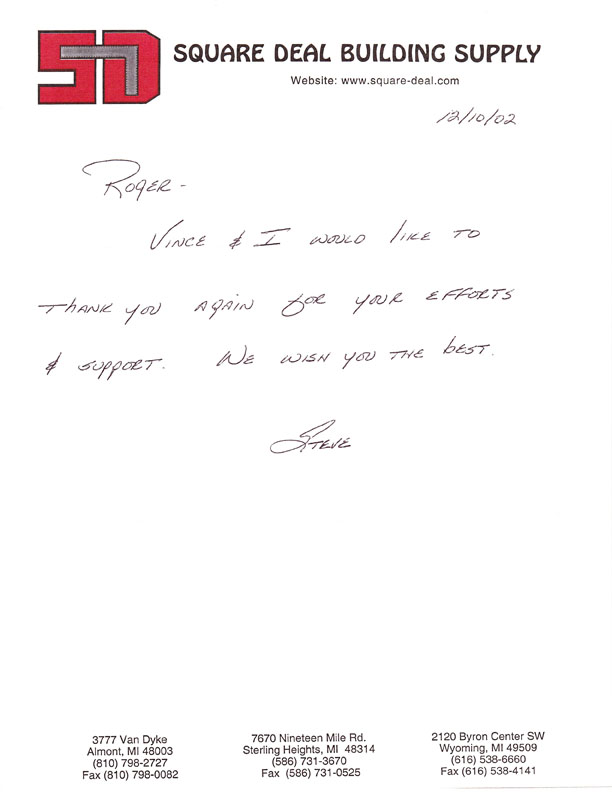 SD SQUARE DEAL BUILDING SUPPLY
Website: www.square-deal.com
12/10/02
ROGER -
VINCE & I WOULD LIKE TO
THANK YOU AGAIN FOR YOUR EFFORTS
& SUPPORT. WE WISH YOU THE BEST.
STEVE
3777 Van Dyke
Almont, MI 48003
(810) 798-2727
Fax (810) 798-0082
7670 Nineteen Mile Rd.
Sterling Heights, MI 48314
(586) 731-3670
Fax (586) 731-0525
2120 Byron Center SW
Wyoming, MI 49509
(616) 538-6660
Fax (616) 538-4141